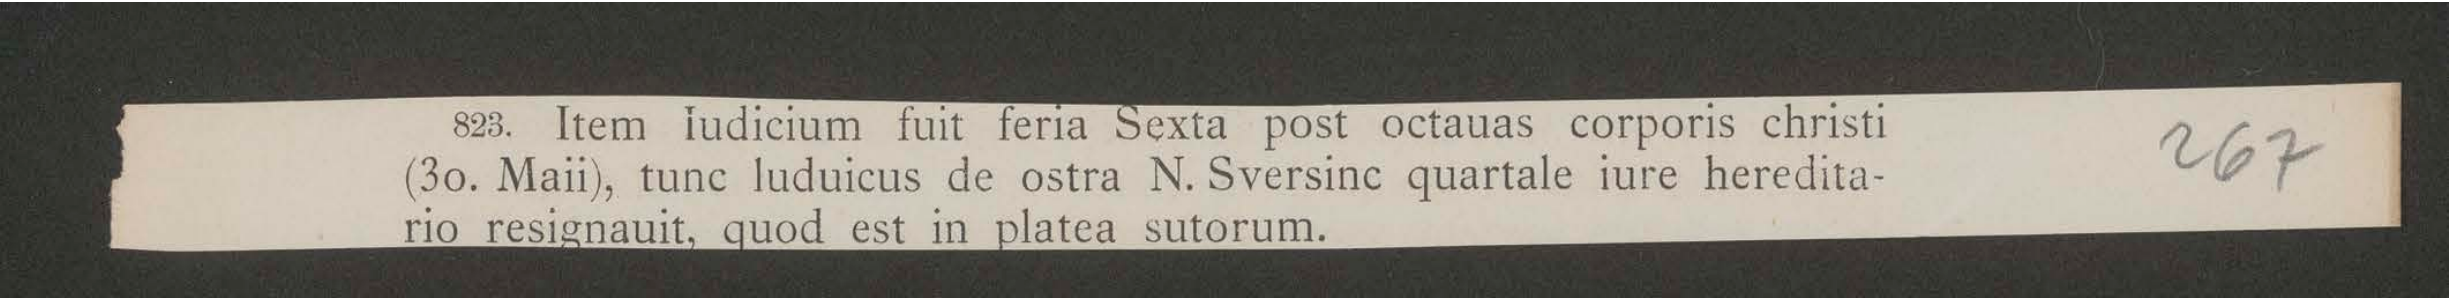 823. Item Iudicium fuit feria Sexta post octauas corporis christi
(30. Maii), tunc luduicus de ostra N. Sversinc quartale iure heredita-
rio resignauit, quod est in platea sutorum.
267